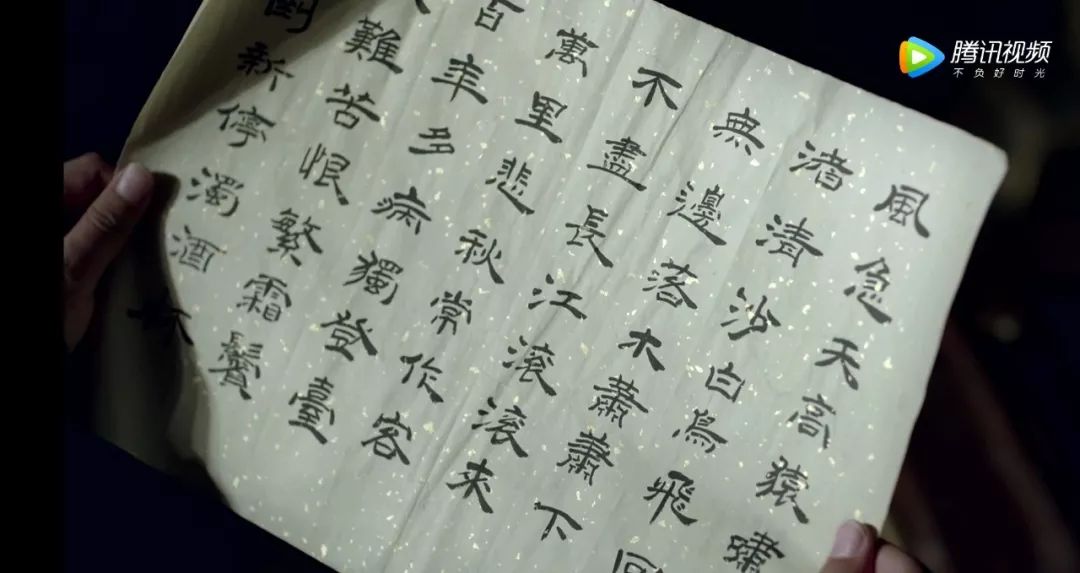 騰訊視頻
不负好时光
風急天高猿嘯
渚清沙白鳥飛回
無邊落木蕭蕭下
不盡長江滾滾來
萬里悲秋常作客
百年多病獨登臺
難苦恨繁霜鬢
新停濁酒杯